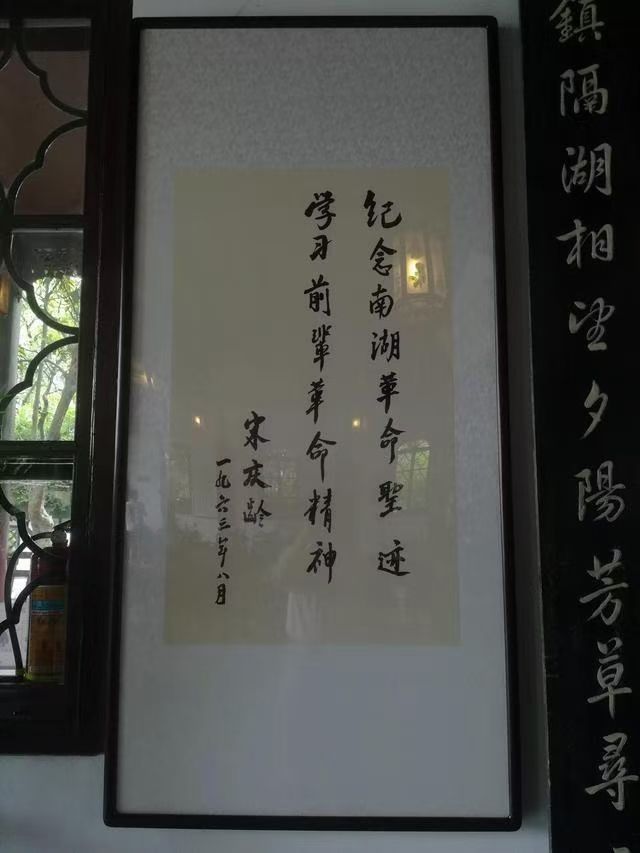 纪念南湖革命聖迹
学习前辈革命精神
宋庆龄
一九六三年八月
鎮隔湖相望夕陽芳草尋